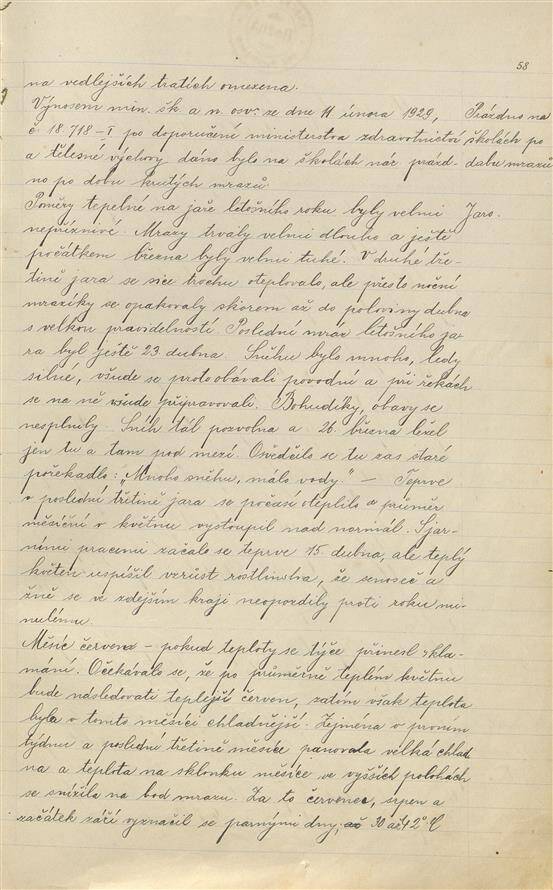 58
na vedlejších tratích omezena.
Výnosem min. šk. a n. osv. ze dne 11 února 1929, Prázdno na
č. 18.718-I po doporučení ministerstva zdravotnictví školách po
a tělesné výchovy dáno bylo na školách nár prázd- dobu mrazů
no po dobu krutých mrazů
Poměry tepelné na jaře letošního roku byly velmi Jaro.
nepříznivé. Mrazy trvaly velmi dlouho a ještě
počátkem března byly velmi tuhé. V druhé tře-
tině jara se sice trochu oteplovalo, ale přesto noční
mrazíky se opakovaly skorem až do poloviny dubna
s velkou pravidelností. Poslední mráz letošního ja-
ra byl ještě 23 dubna. Sněhu bylo mnoho, ledy
silné, všude se proto obávali povodní a při řekách
se na ně všude připravovali. Bohudíky, obavy se
nesplnily. Sníh tál pozvolna a 26. března ležel
jen tu a tam pod mezí. Osvědčilo se tu zas staré
pořekadlo: „Mnoho sněhu, málo vody." — Teprve
v poslední třetině jara se počasí oteplilo a průměr
měsíční v květnu vystoupil nad normál. S jar-
ními pracemi začalo se teprve 15. dubna, ale teplý
květen uspíšil vzrůst rostlinstva, že senoseč a
žně se ve zdejším kraji neopozdily proti roku mi-
nulému.
Měsíc červen – pokud teploty se týče přinesl zkla-
mání. Očekávalo se, že po průměrně teplém květnu
bude následovati teplejší červen, zatím však teplota
byla v tomto měsíci chladnější. Zejména v prvním
týdnu a poslední třetině měsíce panovala velká chlad
na a teplota na sklonku měsíce ve vyšších polohách
se snížila na bod mrazu. Za to červenec, srpen a
začátek září vyznačil se parnými dny, až 30 až 42° C